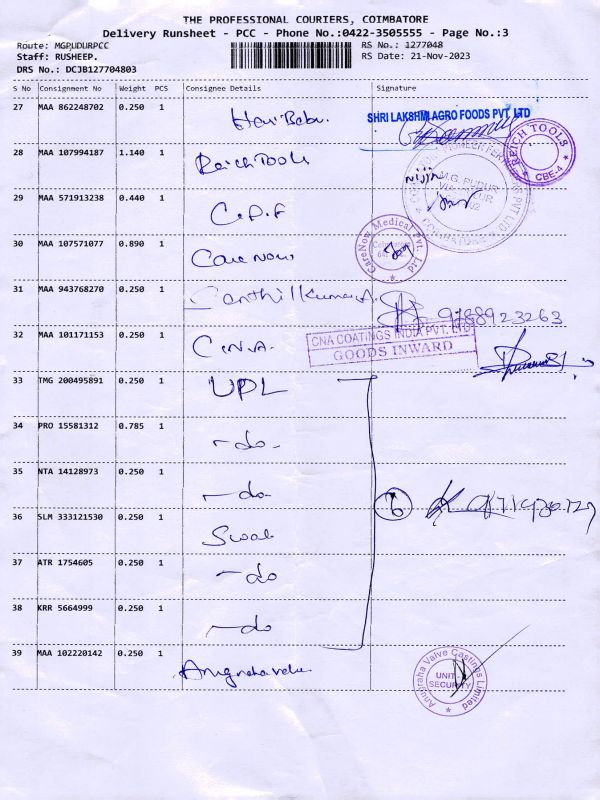 THE PROFESSIONAL COURIERS, COIMBATORE
Delivery Runsheet - PCC - Phone No.:0422-3505555 - Page No.:3
Route: MGPUDURPCC
RS No.: 1277048
Staff: RUSHEEP.
RS Date: 21-Nov-2023
DRS No.: DCJB127704803
S No Consignment No Weight PCS Consignee Details Signature
27 MAA 862248702 0.250 1 Hari Babu
SHRI LAKSHMI AGRO FOODS PVT. LTD
28 MAA 107994187 1.140 1 Reich Tools
REICH TOOLS
CBE-4
29 MAA 571913238 0.440 1 C.P.F
M.G. PUDUR
30 MAA 107571077 0.890 1 Care Now
CareNow Medical Pvt. Ltd
31 MAA 943768270 0.250 1 Senthilkumar A. 9788923263
32 MAA 101171153 0.250 1 C.N.A.
CNA COATINGS INDIA PVT. LTD
GOODS INWARD
33 TMG 200495891 0.250 1 UPL
34 PRO 15581312 0.785 1 - do -
35 NTA 14128973 0.250 1 - do -
36 SLM 333121530 0.250 1
6
37 ATR 1754605 0.250 1 - do
38 KRR 5664999 0.250 1 - do
39 MAA 102220142 0.250 1
Anugraha Valve Castings Limited
UNIT-
SECURITY